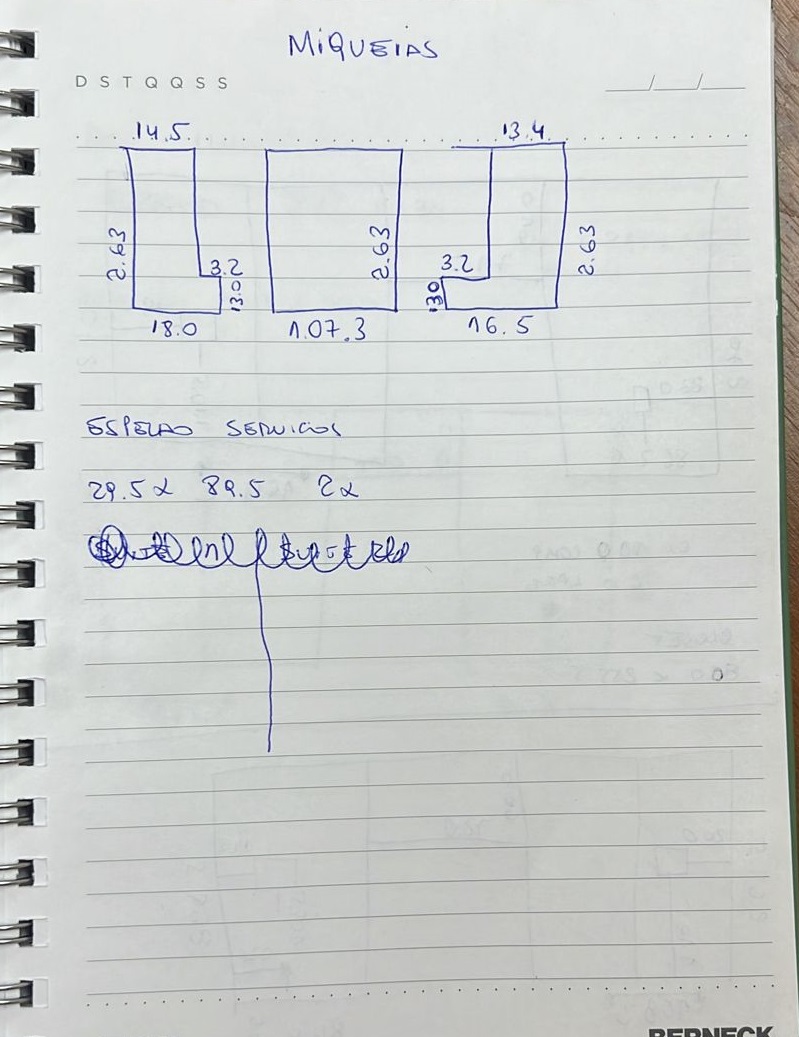 MIQUEIAS
D S T Q Q S S
14.5 13.4
2.63 2.63 2.63
3.2 3.2
13.0 130
18.0 1.07.3 16.5
ESPELAO SERVICOS
29.5 x 89.5 2x
BERNECK